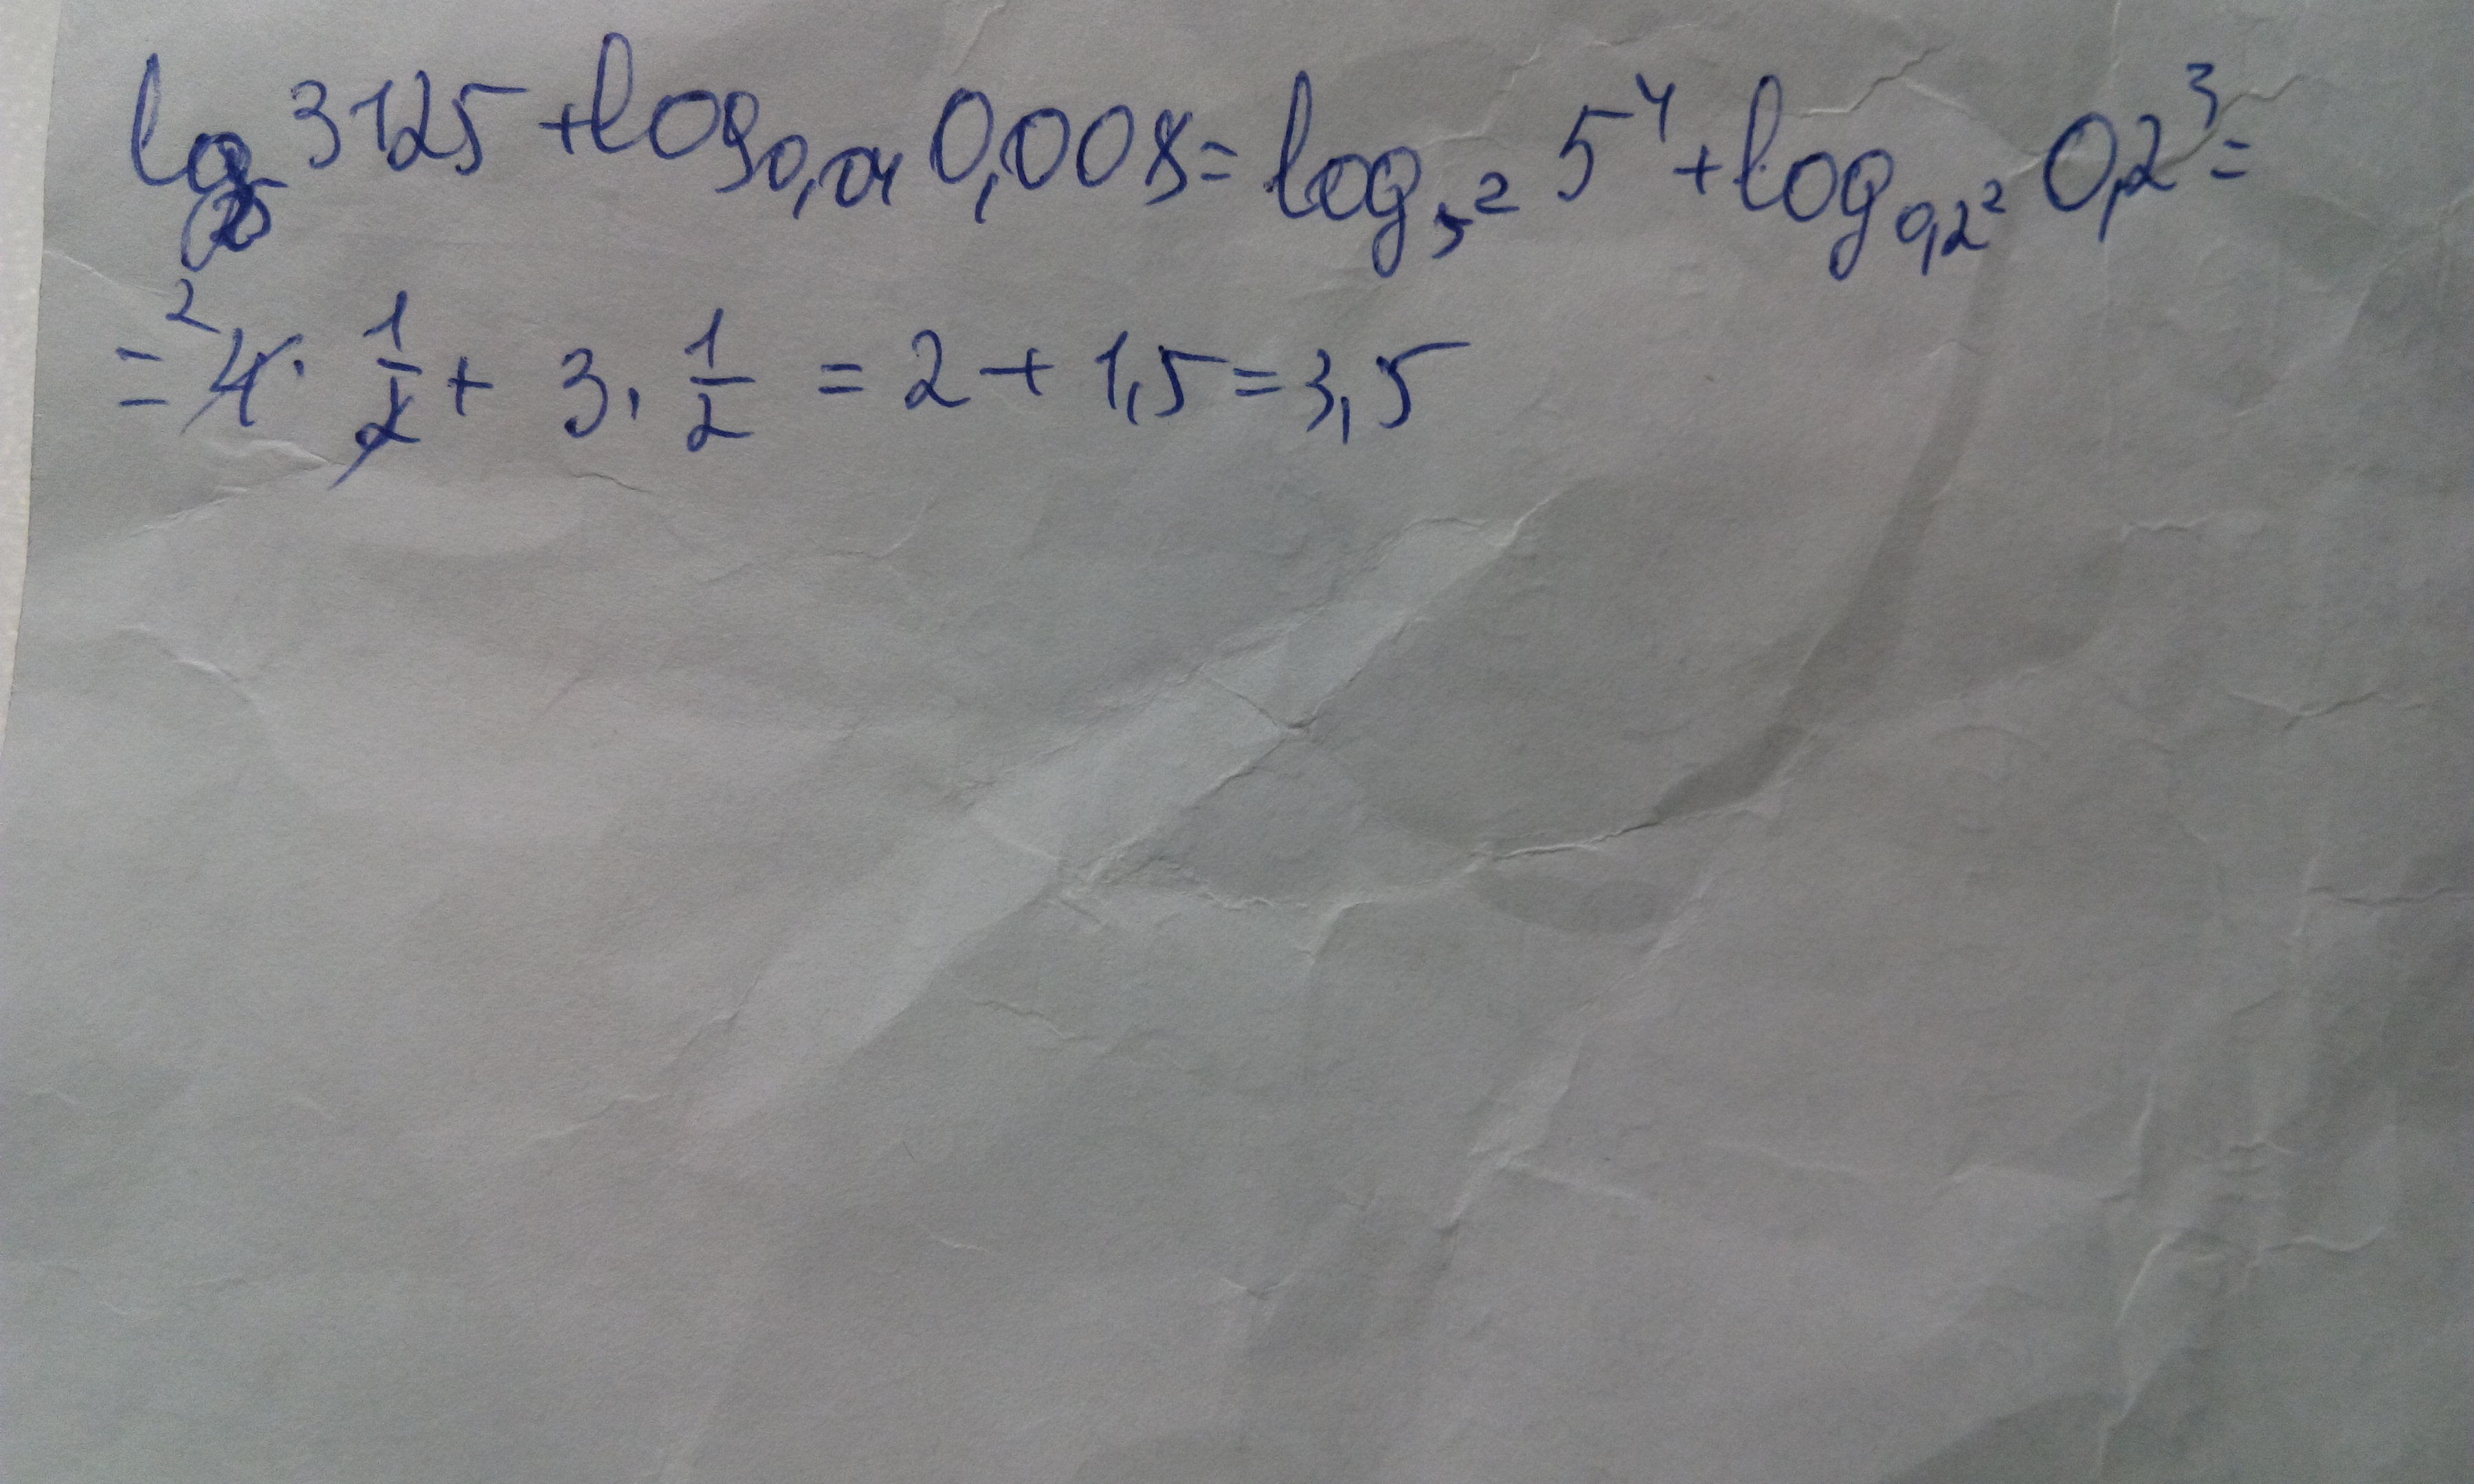 log₂₅ 3125 + log₀,₀₄ 0,008 = log₅² 5⁴ + log₀,₂² 0,2³ =
= ²4 · 1/2 + 3 · 1/2 = 2 + 1,5 = 3,5